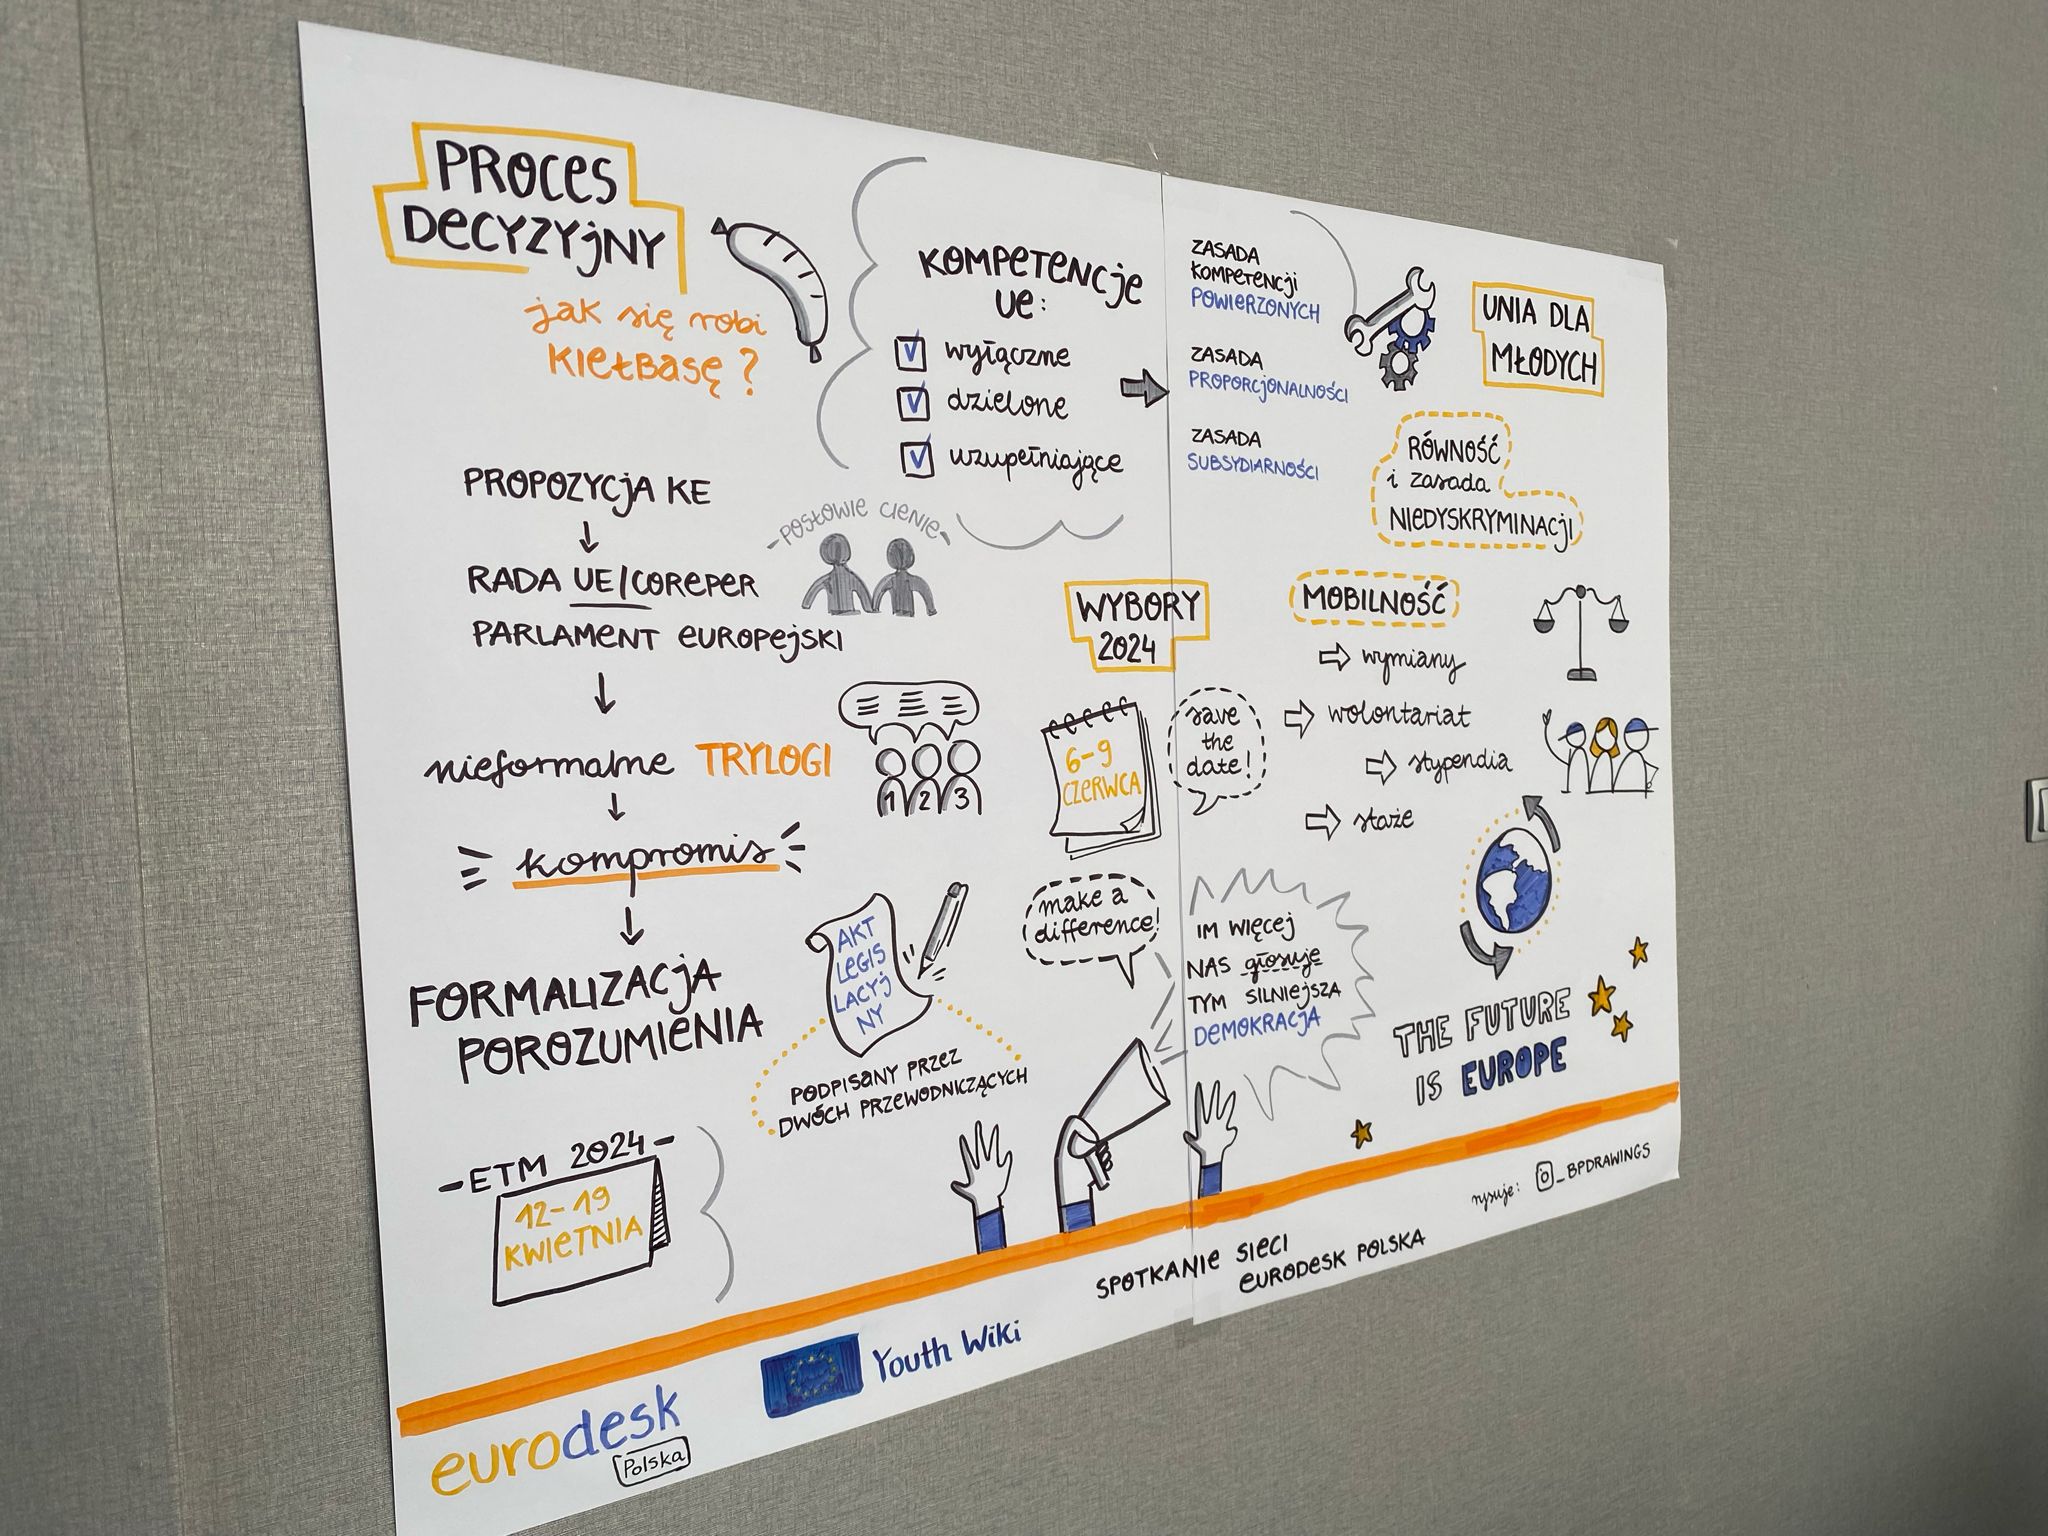 PROCES
DECYZYJNY
jak się robi
KIEŁBASĘ?
PROPOZYCJA KE
RADA UE/COREPER
PARLAMENT EUROPEJSKI
POSŁOWIE CIENIE
nieformalne TRYLOGI
1 2 3
kompromis
FORMALIZACJA
POROZUMIENIA
AKT
LEGIS
LACYJ
NY
PODPISANY PRZEZ
DWÓCH PRZEWODNICZĄCYCH
- ETM 2024 -
12-19
KWIETNIA
KOMPETENCJE
UE:
wyłączne
dzielone
uzupełniające
ZASADA
KOMPETENCJI
POWIERZONYCH
ZASADA
PROPORCJONALNOŚCI
ZASADA
SUBSYDIARNOŚCI
WYBORY
2024
6-9
CZERWCA
save
the
date!
make a
difference!
IM WIĘCEJ
NAS głosuje
TYM SILNIEJSZA
DEMOKRACJA
UNIA DLA
MŁODYCH
RÓWNOŚĆ
i zasada
NIEDYSKRYMINACJI
MOBILNOŚĆ
wymiany
wolontariat
stypendia
staże
THE FUTURE
IS EUROPE
rysuje: _BPDRAWINGS
SPOTKANIE SIECI
EURODESK POLSKA
Youth Wiki
eurodesk
Polska